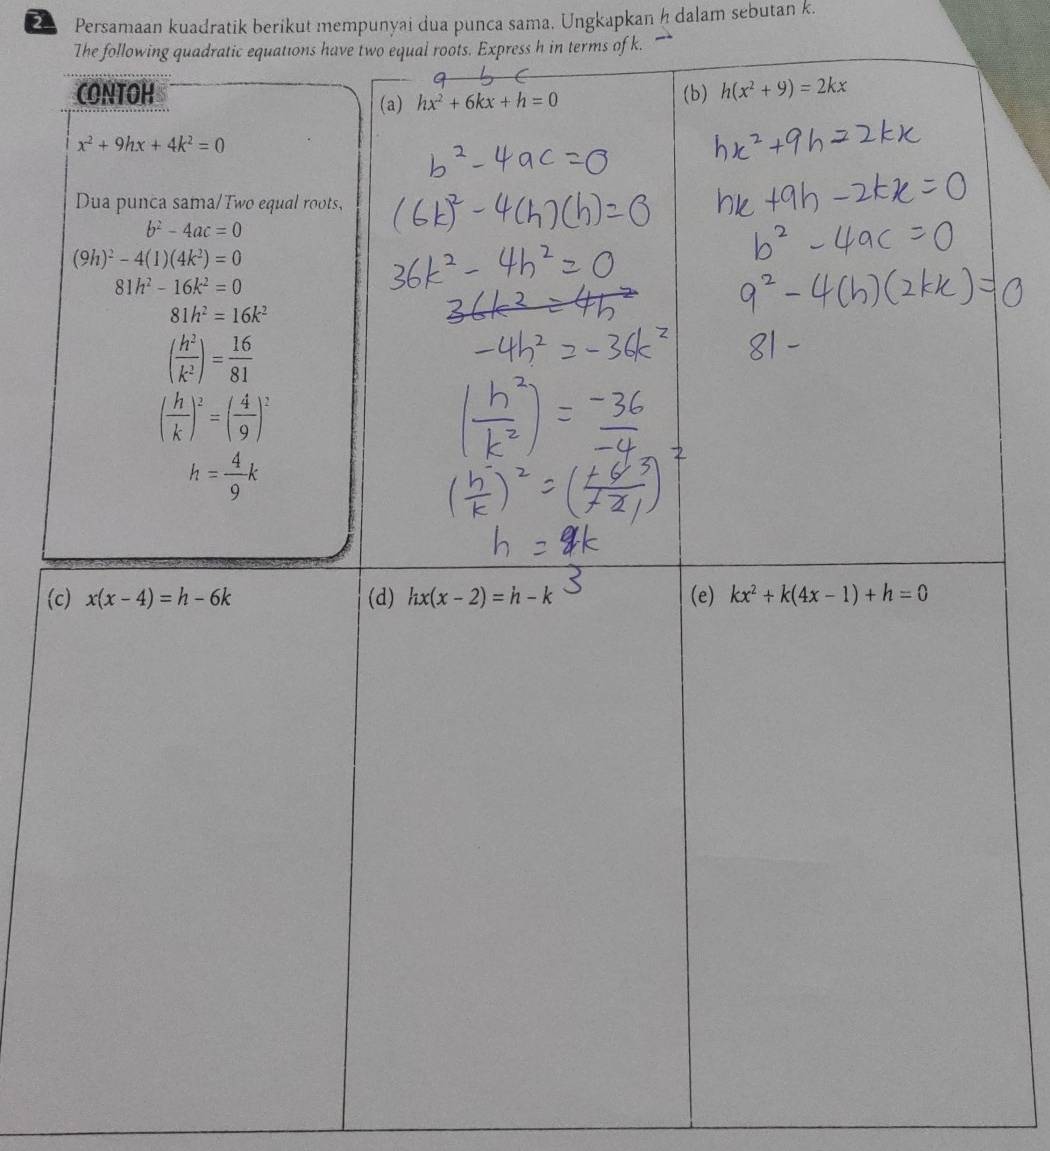 2 Persamaan kuadratik berikut mempunyai dua punca sama. Ungkapkan h dalam sebutan k.
The following quadratic equations have two equal roots. Express h in terms of k.
CONTOH
x² + 9hx + 4k² = 0
Dua punca sama/Two equal roots,
b² - 4ac = 0
(9h)² - 4(1)(4k²) = 0
81h² - 16k² = 0
81h² = 16k²
(h²/k²) = 16/81
(h/k)² = (4/9)²
h = 4/9 k
a b c
(a) hx² + 6kx + h = 0
b² - 4ac = 0
(6k)² - 4(h)(h) = 0
36k² - 4h² = 0
36k² = 4h²
-4h² = -36k²
(h²/k²) = -36/-4
(h/k)² = (+6 3/+2 1)²
h = k
3
(b) h(x² + 9) = 2kx
hx² + 9h = 2kx
hx + 9h - 2kx = 0
b² - 4ac = 0
9² - 4(h)(2kx) = 0
81 -
(c) x(x - 4) = h - 6k
(d) hx(x - 2) = h - k
(e) kx² + k(4x - 1) + h = 0